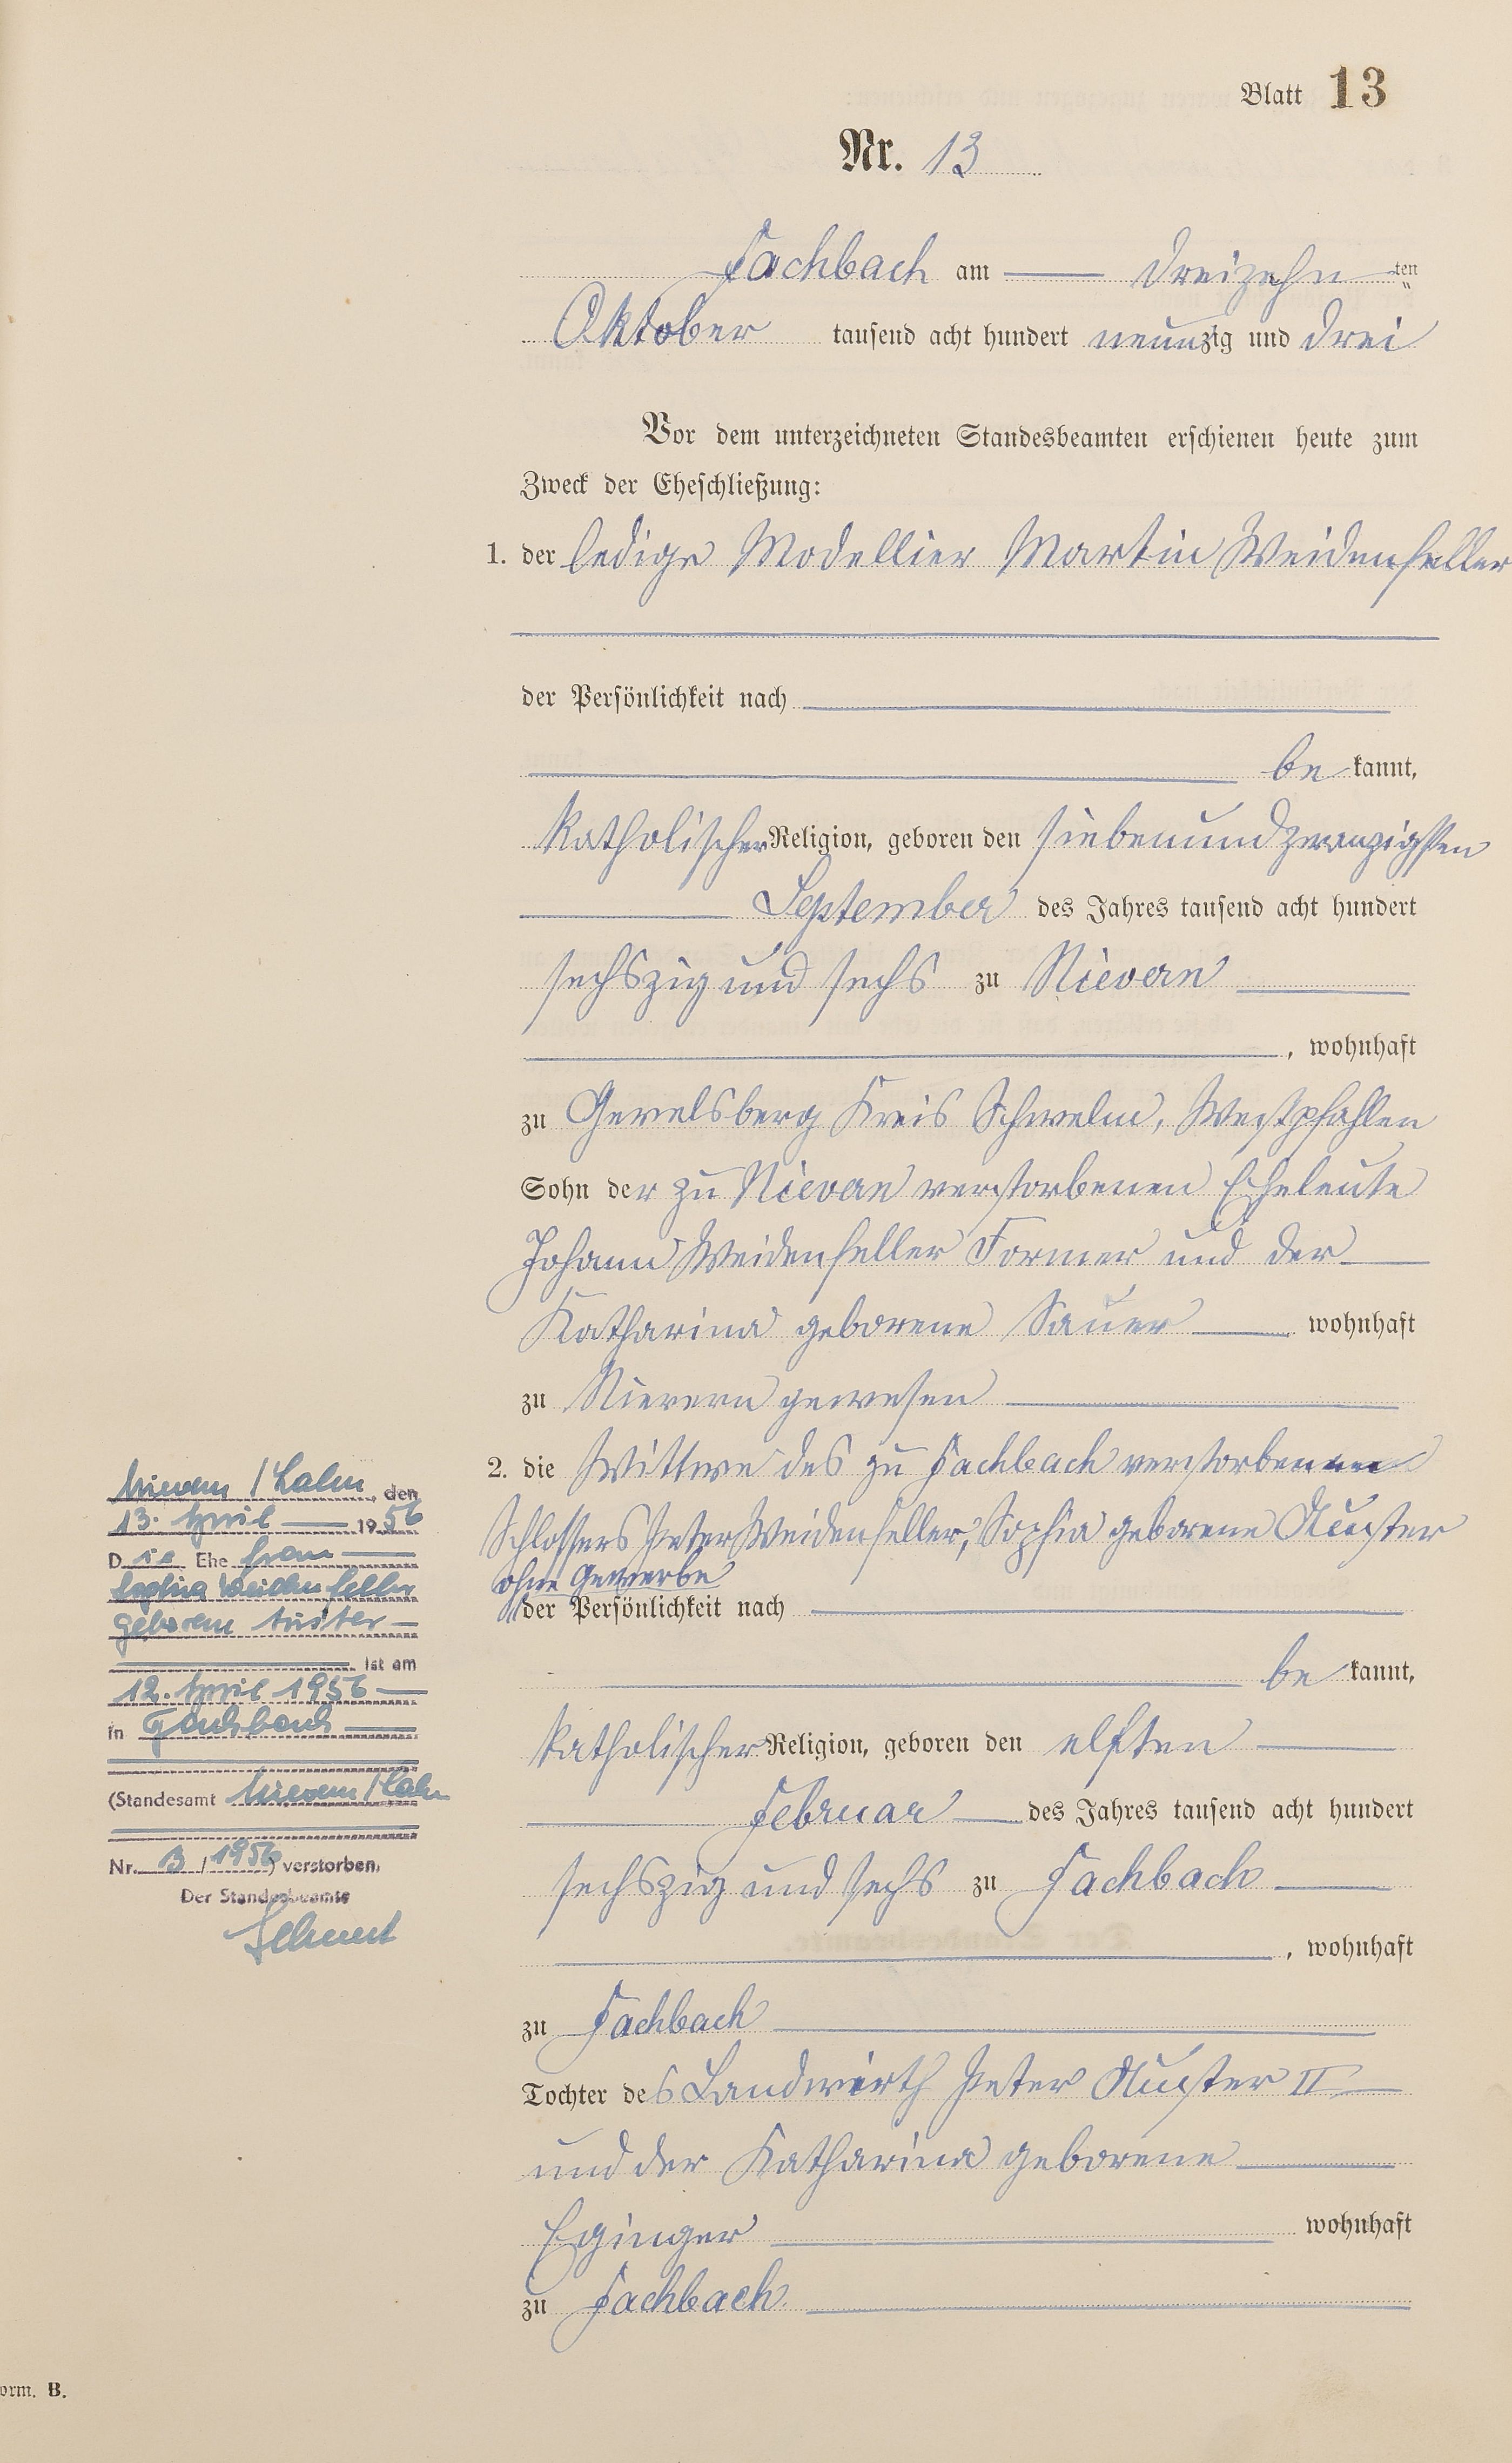 Blatt 13
Nr. 13
Fachbach am dreizehnten
Oktober tausend acht hundert neunzig und drei
Vor dem unterzeichneten Standesbeamten erschienen heute zum
Zweck der Eheschließung:
1. der ledige Modellier Martin Weidenfeller
der Persönlichkeit nach
be kannt,
katholischer Religion, geboren den siebenundzwanzigsten
September des Jahres tausend acht hundert
sechszig und sechs zu Nievern
, wohnhaft
zu Gevelsberg Kreis Schwelm, Westpfahlen
Sohn der zu Nievern verstorbenen Eheleute
Johann Weidenfeller Former und der
Katharina geborene Sauer wohnhaft
zu Nievern gewesen
2. die Wittwe des zu Fachbach verstorbenen
Schlossers Peter Weidenfeller, Sophia geborene
ohne Gewerbe
der Persönlichkeit nach
be kannt,
katholischer Religion, geboren den elften
Februar des Jahres tausend acht hundert
sechszig und sechs zu Fachbach
, wohnhaft
zu Fachbach
Tochter des Landwirth Peter II
und der Katharina geborene
Eginger wohnhaft
zu Fachbach.
Nievern / Lahn, den
13. April 1956
Die Ehefrau
Sophia Weidenfeller
geborene
ist am
12. April 1956
in Fachbach
(Standesamt Nievern / Lahn
Nr. 3 / 1956) verstorben.
Der Standesbeamte
orm. B.